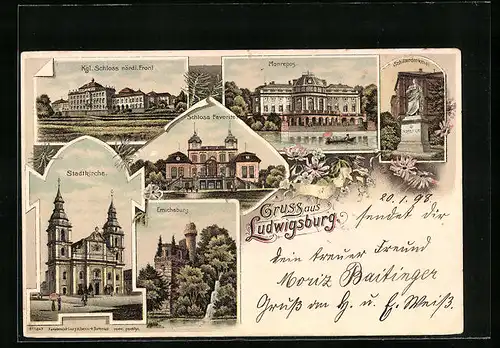 Kgl. Schloss nördl. Front
Monrepos.
Schillerdenkmal
Schloss Favorite
Stadtkirche.
Emichsburg
Gruss aus
Ludwigsburg.
20.1.98
sendet dir
dein treuer Freund
Moriz Baitinger
Gruß an H. u. E. Weiß.